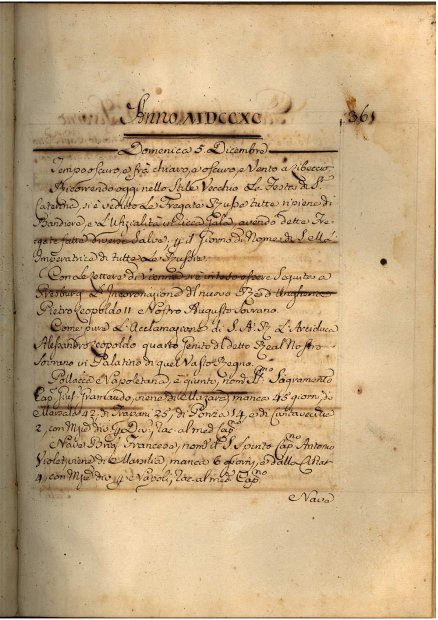 Anno MDCCXC
361
Domenica 5 Dicembre
Tempo oscuro, e frà chiaro, e oscuro, e Vento a Libeccio.
Ricorrendo oggi nello Stile Vecchio La Festa di S.
Caterina, si è veduto Le Fregate Russe tutte ripiene di
Bandiere, e L'Ufizialità in Ricca Gala, avendo dette Fre-
gate fatte diverse Salve, p. il Giorno di Nome di S. Mtà
Imperatrice di tutte Le Russie.
Con Le Lettere di Vienna si è inteso essere Seguita a
Presburg L'Incoronazione del nuovo Re d'Ungheria
Pietro Leopoldo II Nostro Augusto Sovrano.
Come pure L'Acclamazione di S. A. R. L'Arciduca
Alessandro Leopoldo quarto Genito di detto Real Nostro
Sovrano in Palatino di quel Vasto Regno.
Pollacca Napoletana, è giunta, nom. SSmo Sagramento
Cap. viene di Mazzara, manca 45 giorni, di
Marsala 42, di Trapani 25, di Ponza 14, e di Civitavecchia
2, con al med. Capno
Nave Francese, nom. il S. Spirito Capno Antonio
viene di Marsilia, manca 6 giorni, e dalla
4, con p. Napoli, al med. Capno
Nave